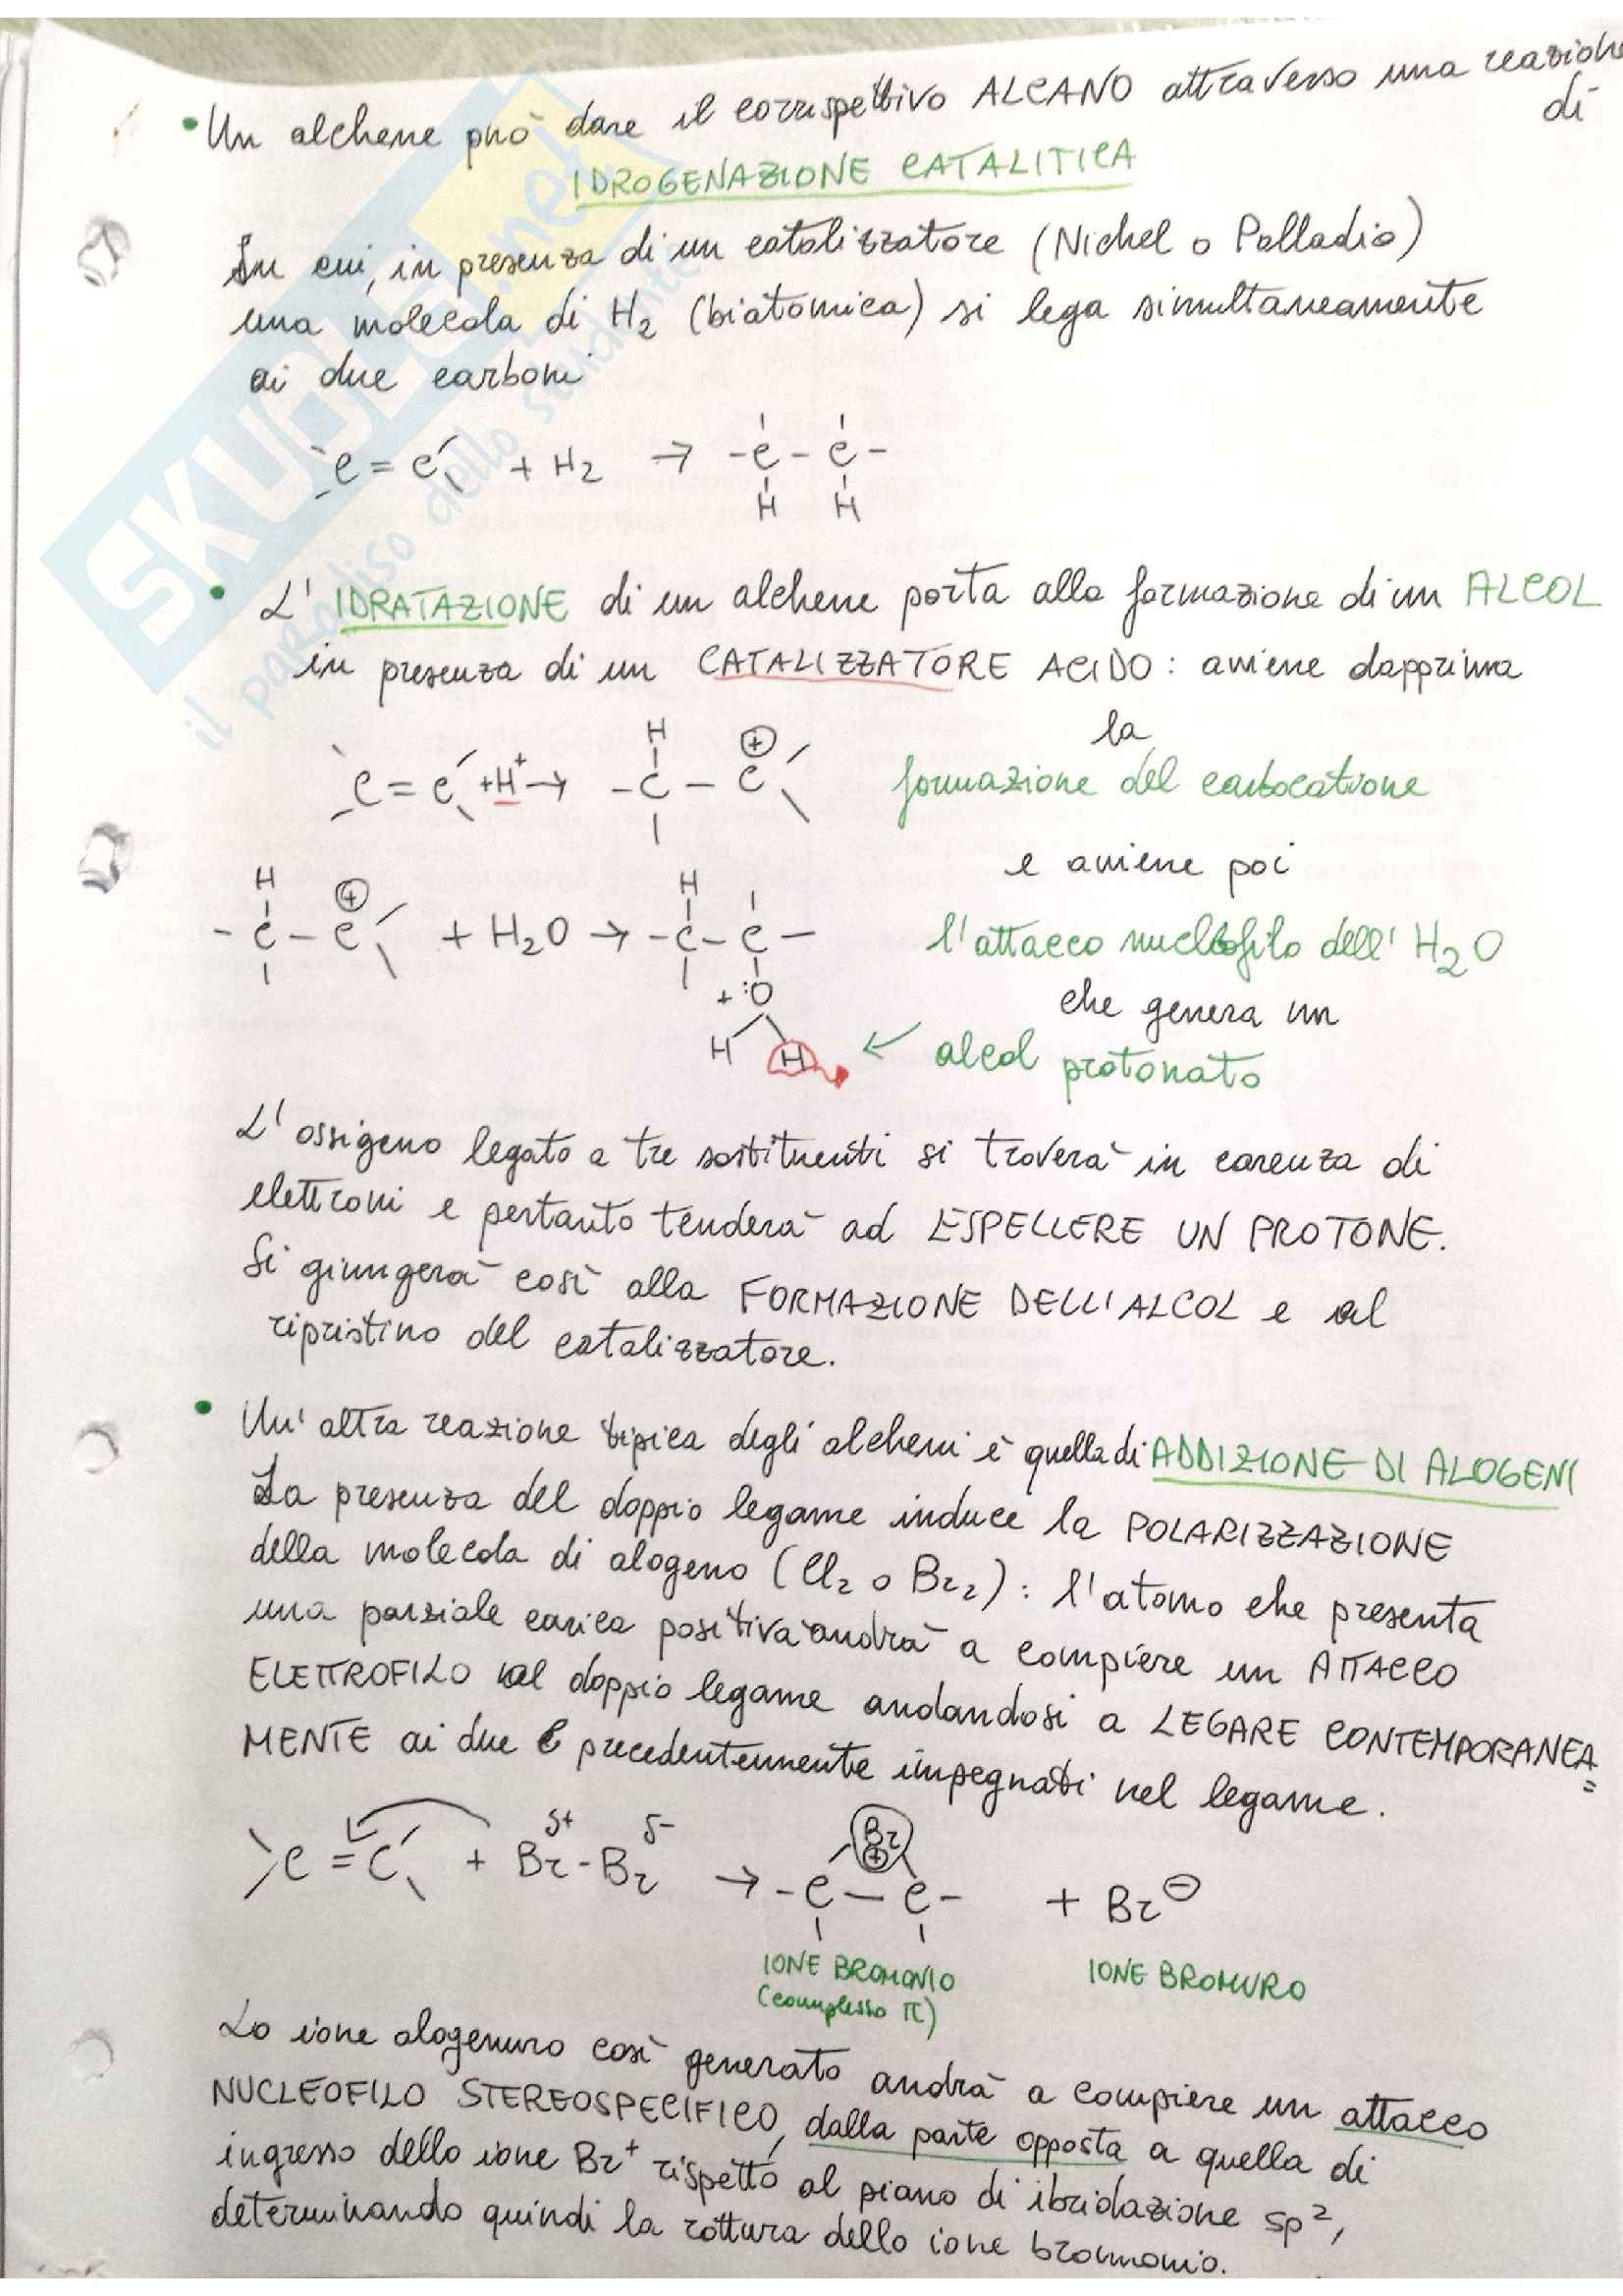 • Un alchene può dare il corrispettivo ALCANO attraverso una reazione
di
IDROGENAZIONE CATALITICA
In cui, in presenza di un catalizzatore (Nichel o Palladio)
una molecola di H₂ (biatomica) si lega simultaneamente
ai due carboni
C = C + H₂ → - C - C -
H H
• L'IDRATAZIONE di un alchene porta alla formazione di un ALCOL
in presenza di un CATALIZZATORE ACIDO: avviene dapprima
la
H ⊕
C = C + H⁺ → - C - C
formazione del carbocatione
e avviene poi
H ⊕ H
- C - C + H₂O → - C - C -
l'attacco nucleofilo dell'H₂O
+ :O
che genera un
H H
← alcol protonato
L'ossigeno legato a tre sostituenti si troverà in carenza di
elettroni e pertanto tenderà ad ESPELLERE UN PROTONE.
Si giungerà così alla FORMAZIONE DELL'ALCOL e al
ripristino del catalizzatore.
• Un'altra reazione tipica degli alcheni è quella di ADDIZIONE DI ALOGENI
La presenza del doppio legame induce la POLARIZZAZIONE
della molecola di alogeno (Cl₂ o Br₂): l'atomo che presenta
una parziale carica positiva andrà a compiere un ATTACCO
ELETTROFILO al doppio legame andandosi a LEGARE CONTEMPORANEA=
MENTE ai due C precedentemente impegnati nel legame.
δ+ δ- Br ⊕
C = C + Br - Br → - C - C - + Br⊖
IONE BROMONIO IONE BROMURO
(complesso π)
Lo ione alogenuro così generato andrà a compiere un attacco
NUCLEOFILO STEREOSPECIFICO, dalla parte opposta a quella di
ingresso dello ione Br⁺ rispetto al piano di ibridazione sp²,
determinando quindi la rottura dello ione bromonio.
SKUOLA.net
il paradiso dello studente